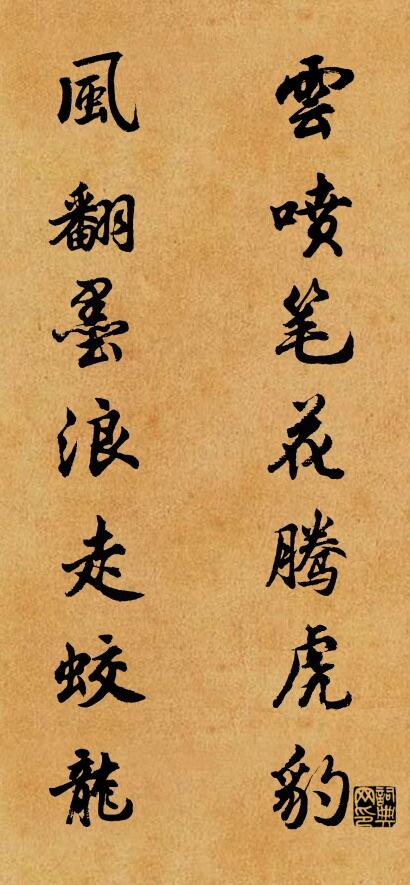 雲噴笔花腾虎豹
風翻墨浪走蛟龍
詞典网